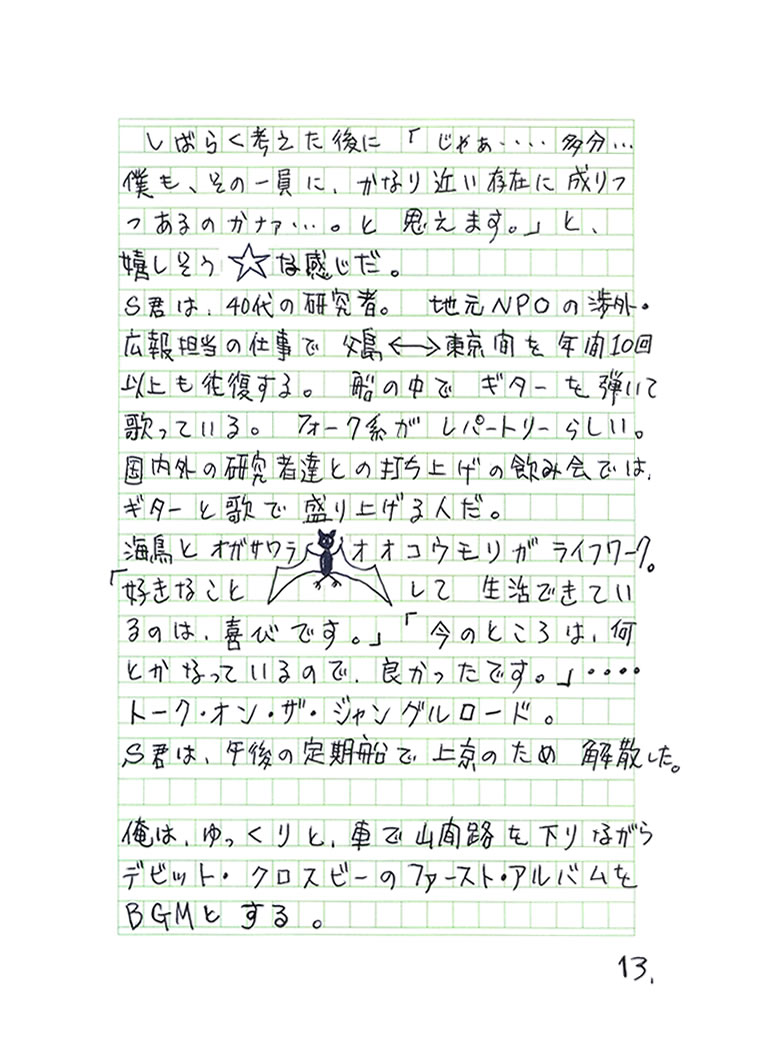 しばらく考えた後に「じゃぁ‥‥多分…
僕も、その一員に、かなり近い存在に成りつ
つあるのかナァ…。と 思えます。」と、
嬉しそう☆な感じだ。
S君は、40代の研究者。 地元NPOの渉外・
広報担当の仕事で 父島↔東京間を年間10回
以上も往復する。 船の中で ギターを弾いて
歌っている。 フォーク系が レパートリーらしい。
国内外の研究者達との打ち上げの飲み会では、
ギターと歌で 盛り上げる人だ。
海鳥とオガサワラオオコウモリが ライフワーク。
「好きなこと して 生活できてい
るのは、喜びです。」「今のところは、何
とかなっているので、良かったです。」‥‥
トーク・オン・ザ・ジャングルロード。
S君は、午後の定期船で上京のため 解散した。
俺は、ゆっくりと、車で山間路を下りながら
デビット・クロスビーのファースト・アルバムを
BGMとする。
13.